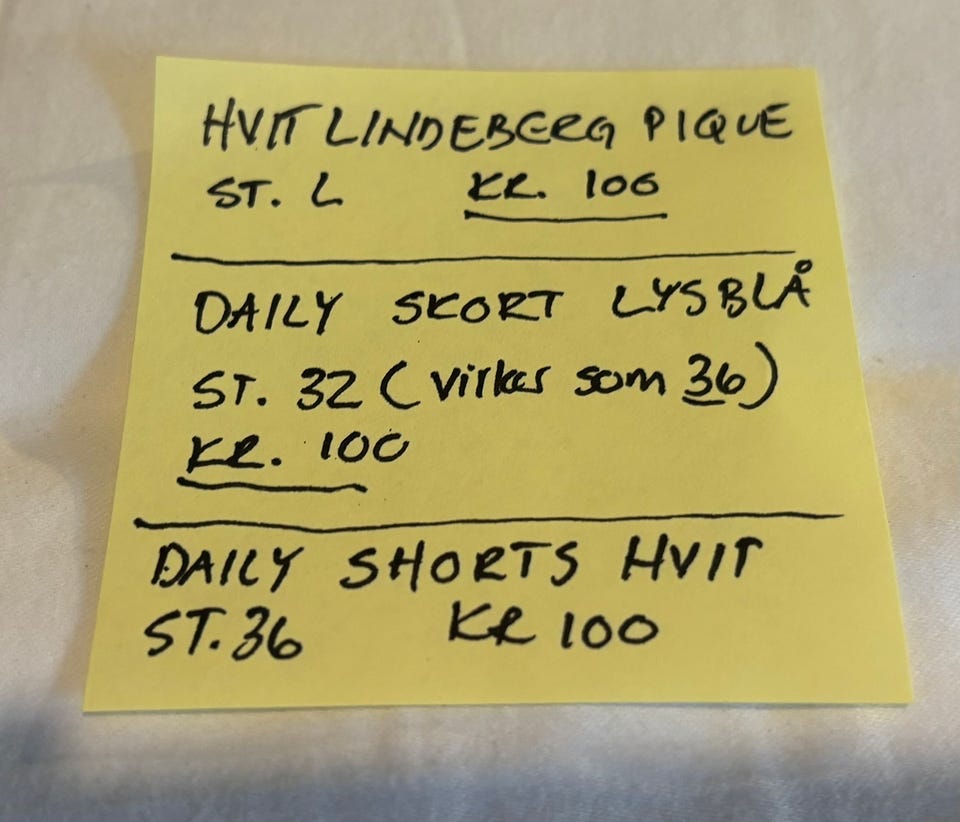 HVIT LINDEBERG PIQUE
ST. L KR. 100
DAILY SKORT LYSBLÅ
ST. 32 (virker som 36)
KR. 100
DAILY SHORTS HVIT
ST. 36 KR 100